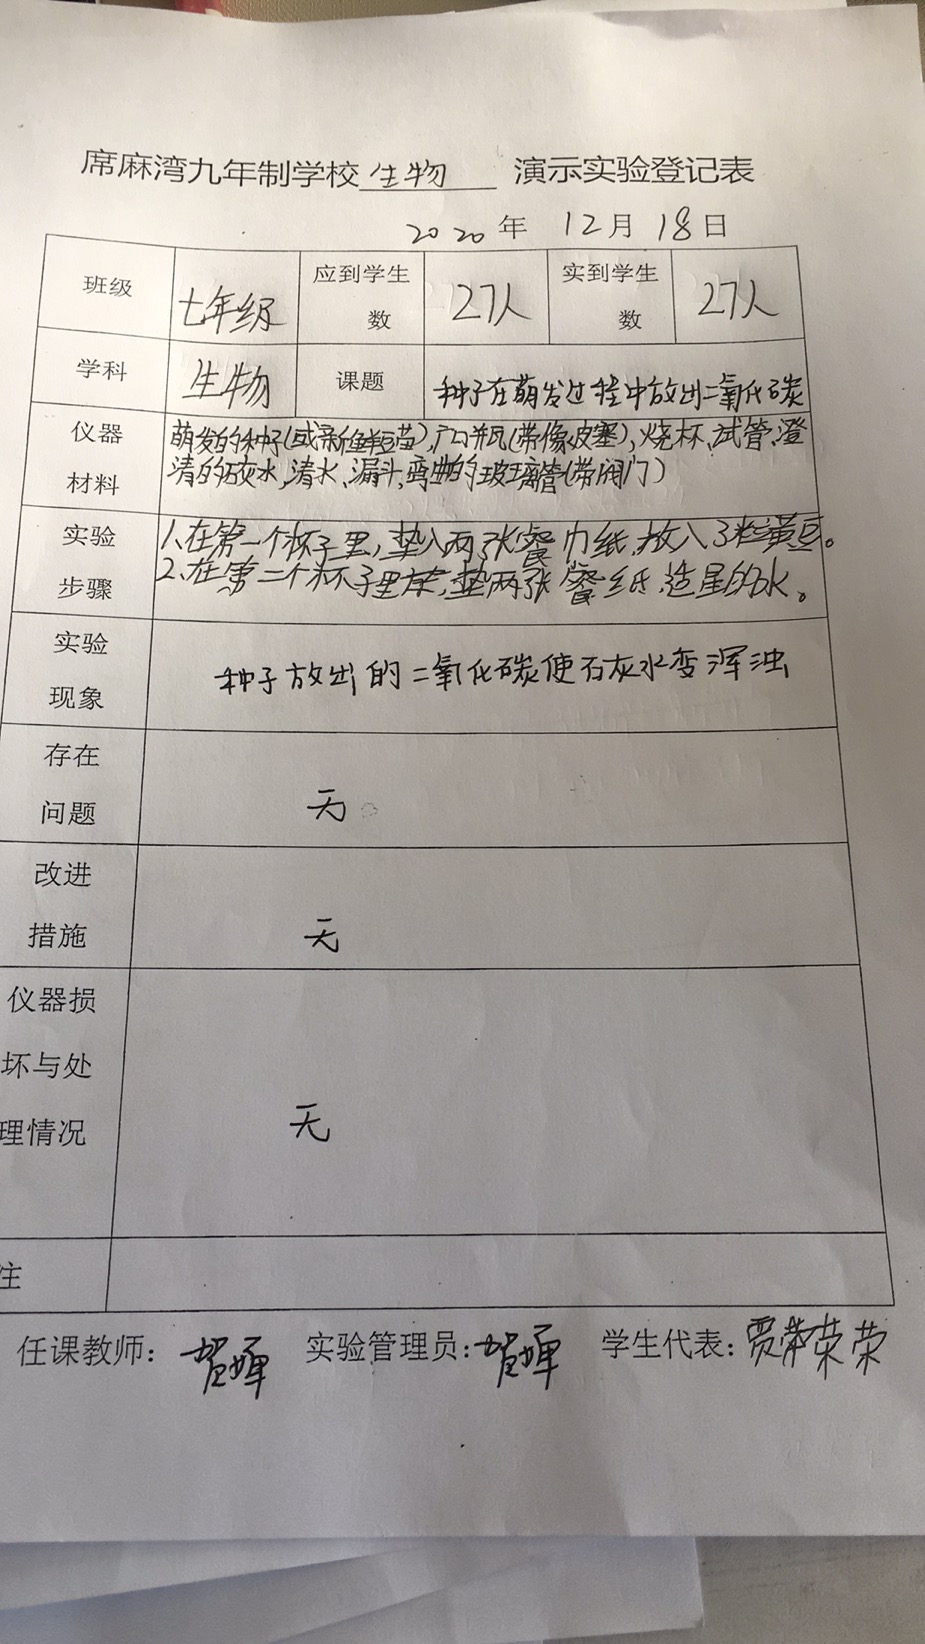 席麻湾九年制学校 生物 演示实验登记表
2020年 12月 18日
班级 七年级 应到学生数 27人 实到学生数 27人
学科 生物 课题 种子在萌发过程中放出二氧化碳
仪器材料
萌发的种子(或新鲜豆苗),广口瓶(带橡皮塞),烧杯,试管,澄
清的石灰水,清水、漏斗,弯曲的玻璃管(带阀门)
实验步骤
1、在第一个杯子里,垫入两张餐巾纸,放入3粒黄豆。
2、在第二个杯子里,垫两张餐纸,适量的水。
实验现象
种子放出的二氧化碳使石灰水变浑浊
存在问题
无
改进措施
无
仪器损坏与处理情况
无
注
任课教师: 实验管理员: 学生代表:贾荣荣